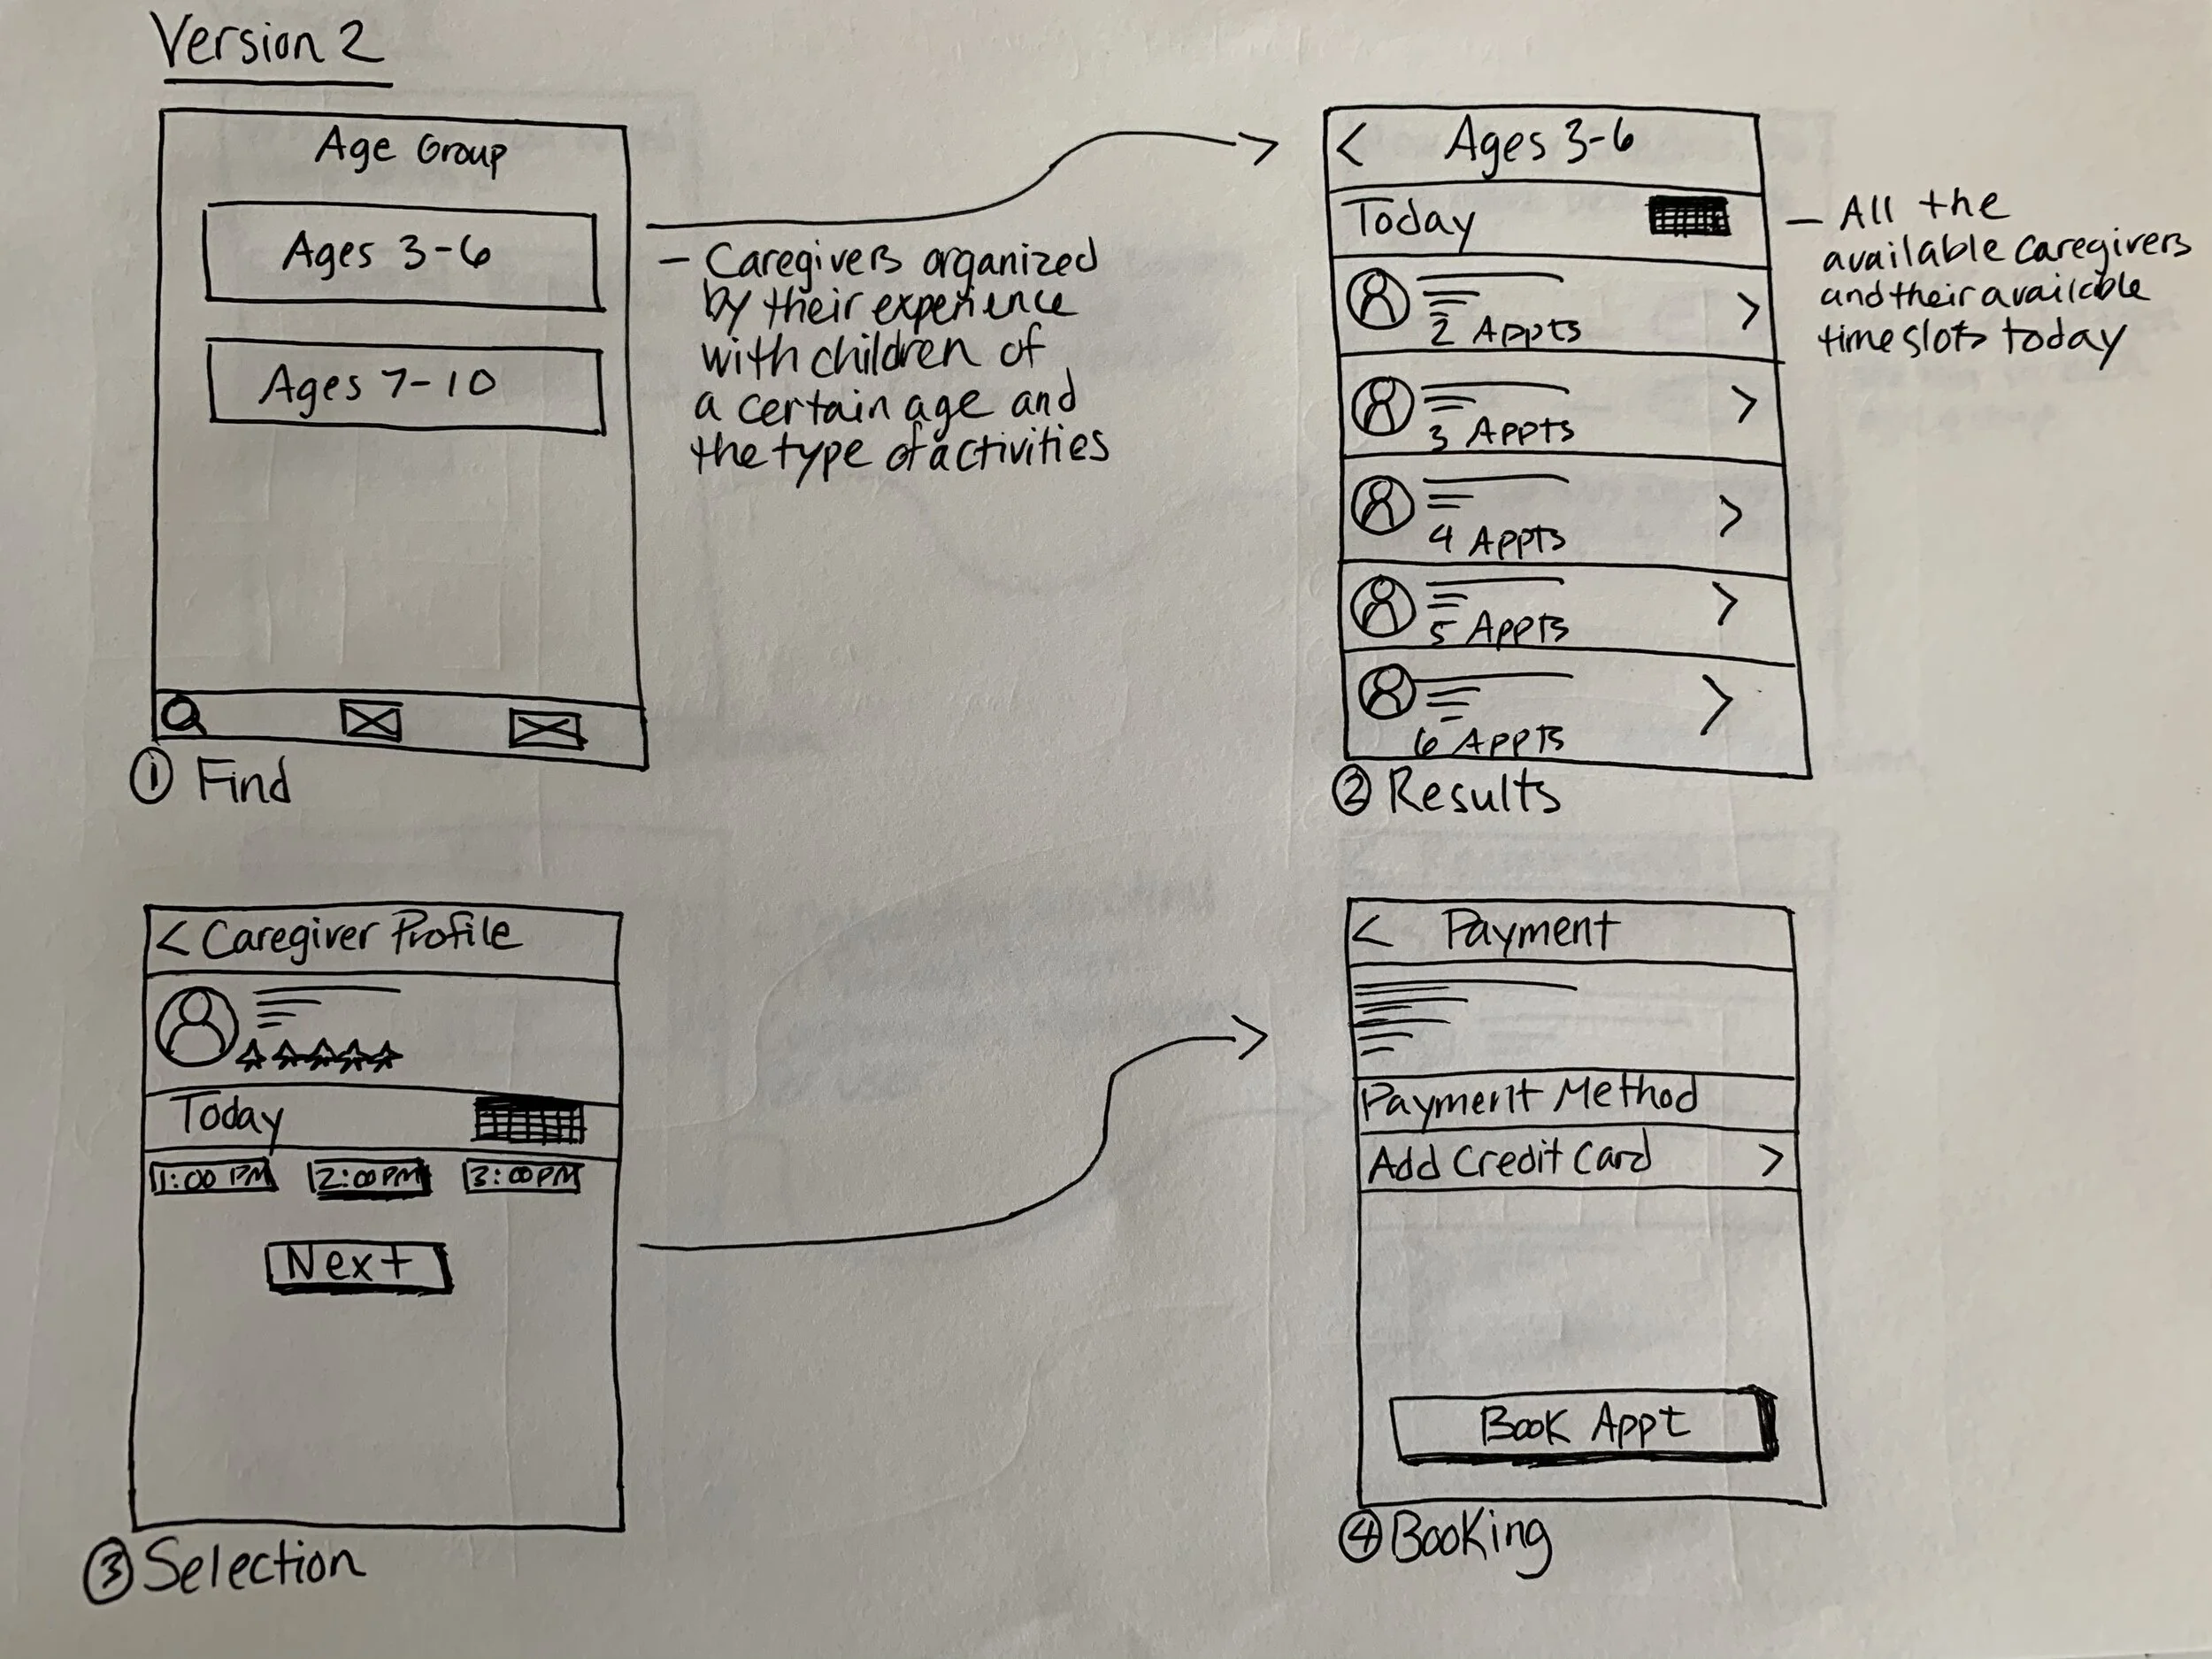 Version 2
Age Group
Ages 3-6
Ages 7-10
① Find
- Caregivers organized
by their experience
with children of
a certain age and
the type of activities
< Ages 3-6
Today
2 Appts >
3 Appts >
4 Appts >
5 Appts >
6 Appts >
② Results
- All the
available caregivers
and their available
time slots today
< Caregiver Profile
Today
1:00 PM 2:00 PM 3:00 PM
Next
③ Selection
< Payment
Payment Method
Add Credit Card >
Book Appt
④ Booking